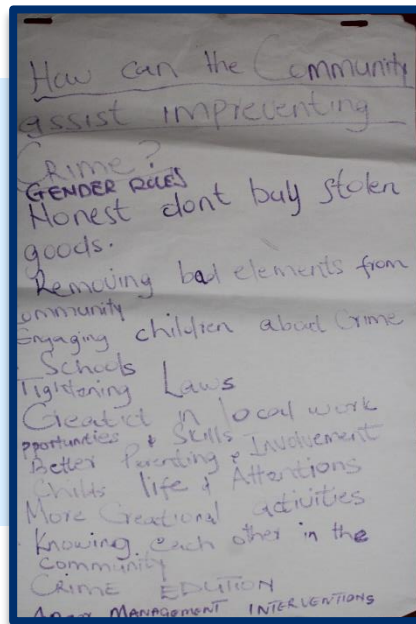 How can the Community
assist impreventing
Crime?
GENDER ROLES
Honest dont buy stolen
goods.
Removing bad elements from
ommunity
Engaging children aboud Crime
- Schools
Tightening Laws
in local work
pportunities & Skills
Better Parenting & Involvement
Childs life & Attentions
More Creational activities
- Knowing each other in the
community
CRIME EDUTION
MANAGEMENT INTERVENTIONS